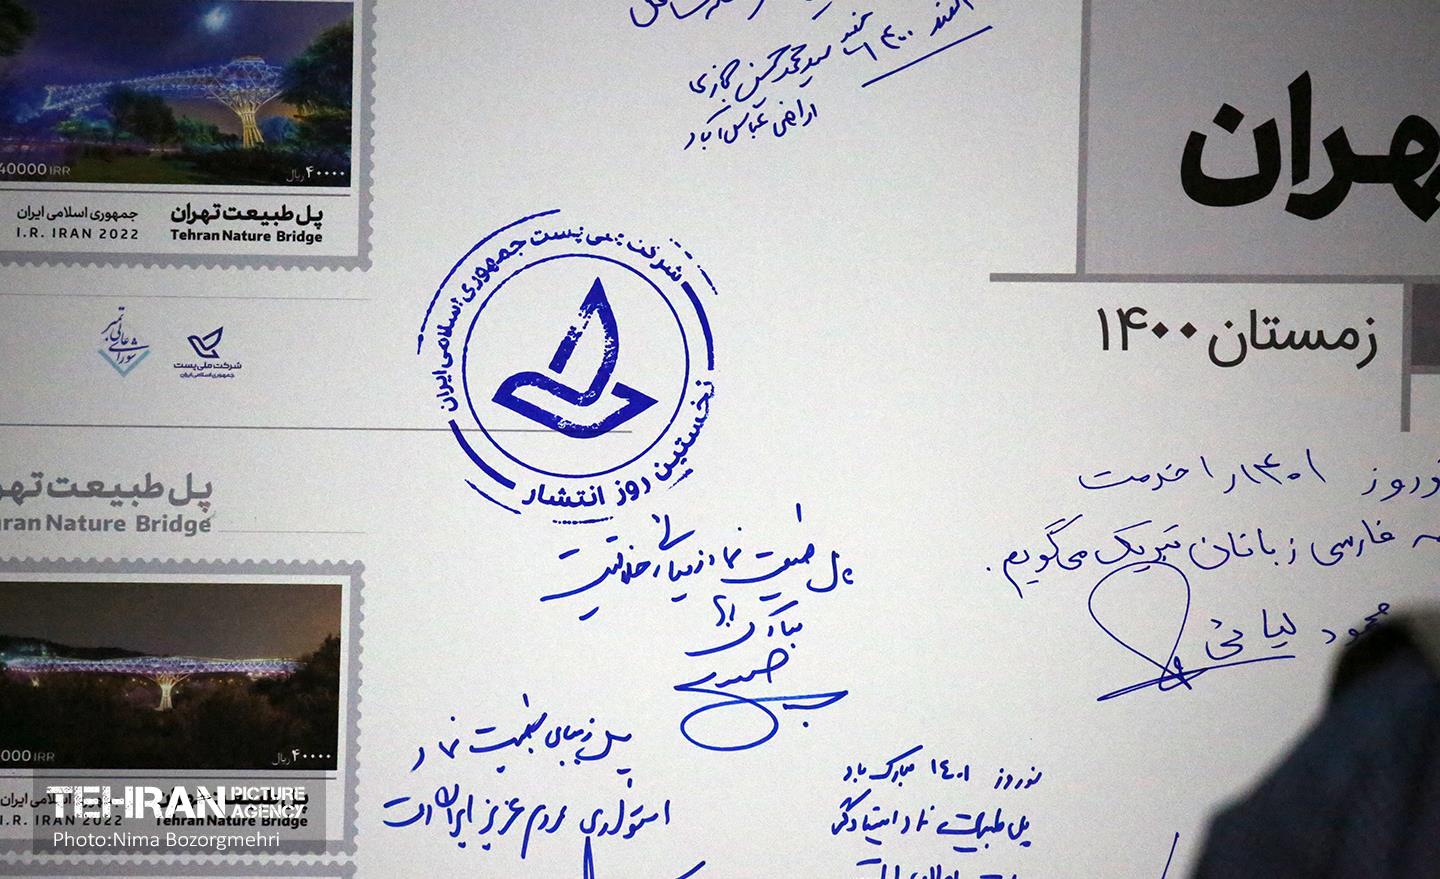 ۱۴۰۰
سید محمد حسین حجازی
اراضی عباس آباد
40000 IRR
۴۰۰۰۰ ریال
پل طبیعت تهران
جمهوری اسلامی ایران
Tehran Nature Bridge
I.R. IRAN 2022
شورای عالی تمبر
شرکت ملی پست
جمهوری اسلامی ایران
شرکت ملی پست جمهوری اسلامی ایران
نخستین روز انتشار
هران
زمستان ۱۴۰۰
پل طبیعت
Nature Bridge
نوروز ۱۴۰۱ را خدمت
فارسی زبانان تبریک می‌گویم.
محمود
پل طبیعت نماد زیبایی و خلاقیت
مبارک
پل زیبای طبیعت نماد
استواری مردم عزیز ایران است
نوروز ۱۴۰۱ مبارک باد
پل طبیعت نماد ایستادگی
000 IRR
۴۰۰۰۰ ریال
اسلامی ایران
I.R. IRAN 2022
Tehran Nature Bridge
TEHRAN PICTURE AGENCY
Photo:Nima Bozorgmehri